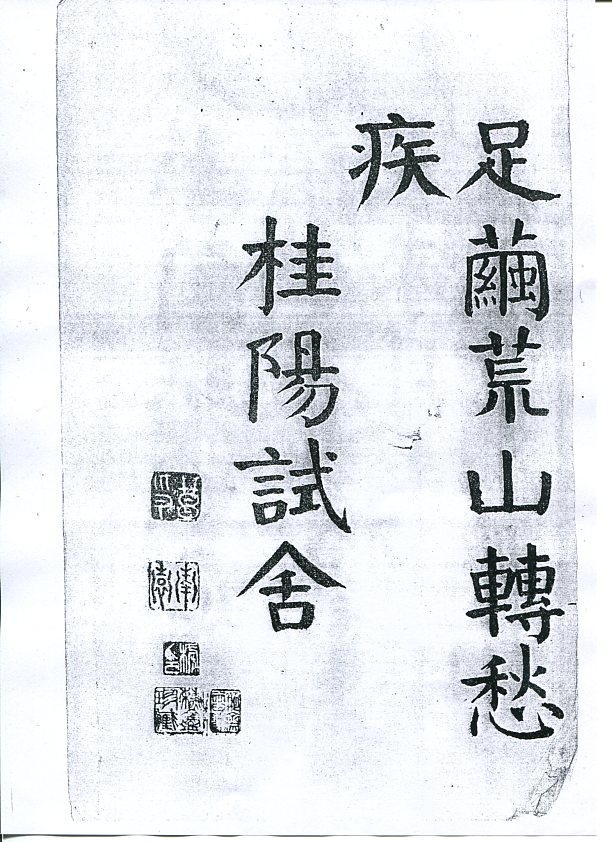 足繭荒山轉愁
疾
桂陽試舍